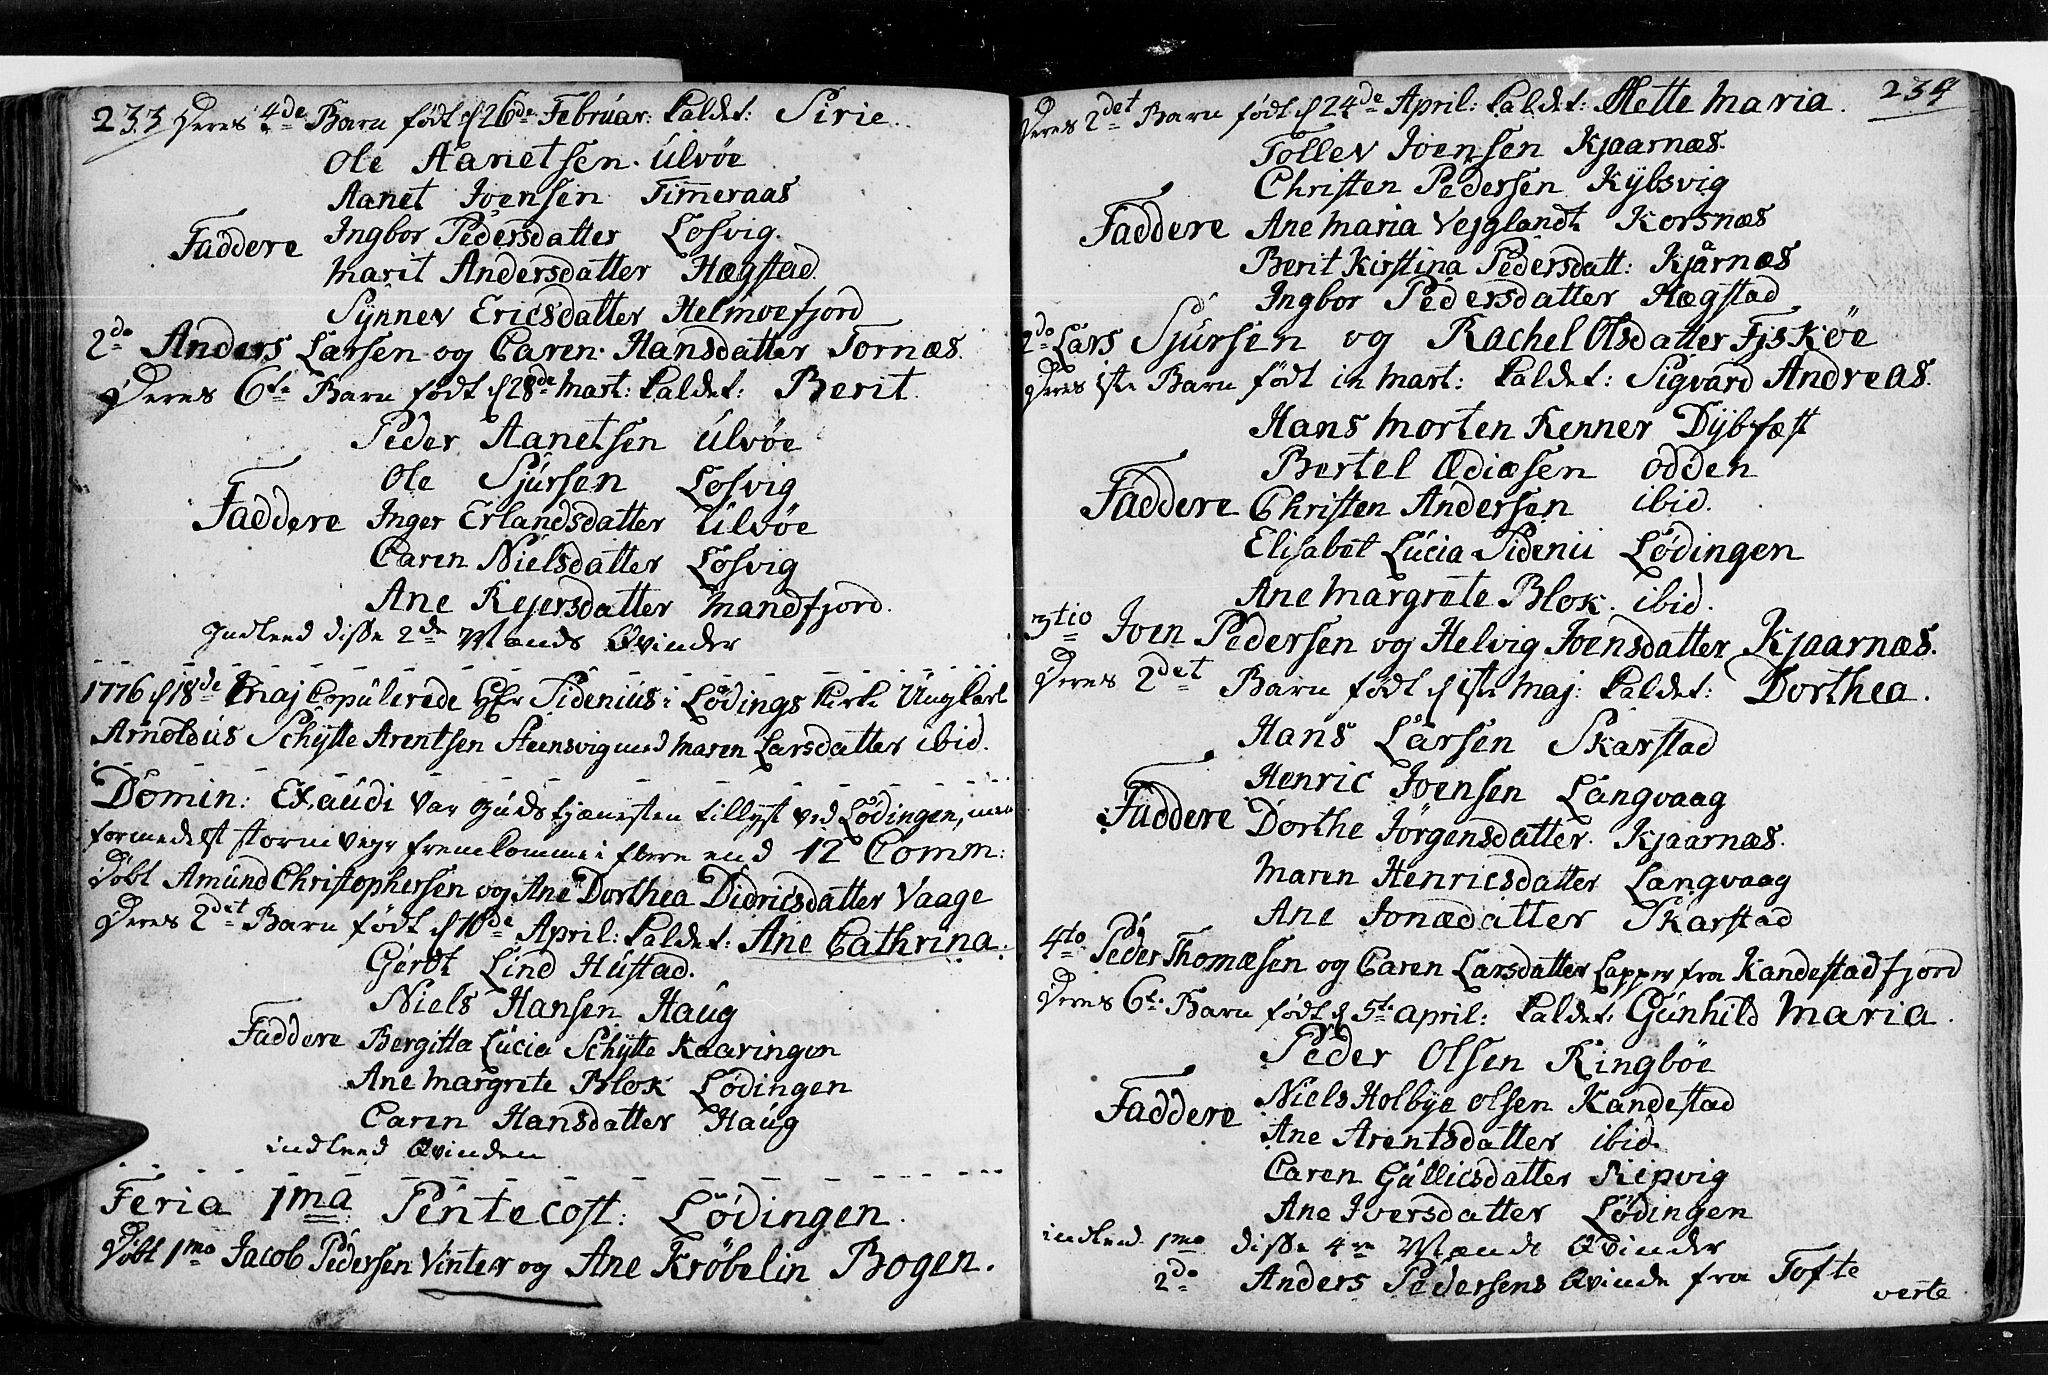 233 Deres 4de Barn født d 26de Februar: kaldet: Sirie.
Ole Aanetsen. Ulvøe
Aanet Joensen Timmeraas
Faddere Ingbor Pedersdatter Losvig.
Marit Andersdatter Hægstad.
Synnev Ericsdatter Helmoefjord
2do Anders Larsen og Caren Hansdatter Tornæs.
Deres 6te Barn født d 28de Mart: kaldet: Berit.
Peder Aanetsen Ulvøe
Ole Sjursen Losvig
Faddere Inger Erlandsdatter Ulvøe
Caren Nielsdatter Losvig
Ane Rejersdatter Mandfjord.
Indleed disse 2de Mænds Qvinder
1776 d 18de Maj Copulerede Hr Sidenius i Lødings Kirke Ungkarl
Arnoldus Schytte Arentsen Steensvig med Maren Larsdatter ibid.
Domin: Exaudi var Gudstjænesten tillyst ved Lødingen, men
formedelst stormvejr fremkomme i flere end 12 Comm:
Døbt Amund Christophersen og Ane Dorthea Didricsdatter Vaage
Deres 2det Barn født d 10de April: kaldet: Ane Cathrina.
Gerdt Lind Hustad.
Niels Hansen Haug
Faddere Bergitta Lucia Schytte Kaaringen
Ane Margrete Blok Lødingen
Caren Hansdatter Haug
indleed Qvinden
Feria 1ma Pentecost: Lødingen.
Døbt 1mo Jacob Pedersen Vinter og Ane Krøbelin Bogen.
239
Deres 2det Barn født d 24de April: kaldet: Mette Maria.
Tollev Joensen Kjaarnæs.
Christen Pedersen Kybsvig
Faddere Ane Maria Vejglandt Korsnæs
Berit Kirstina Pedersdatt: Kjårnæs
Ingbor Pedersdatter Hægstad
2do Lars Sjursen og Rachel Olsdatter Fjskøe
Deres 1ste Barn født in Mart: kaldet: Sigvard Andreas.
Hans Morten Renner Dybfæst
Bertel Ediæsen Odden
Faddere Christen Andersen ibid.
Elisabet Lucia Sidenii Lødingen
Ane Margrete Blok. ibid.
3tio Joen Pedersen og Helvig Joensdatter Kjaarnæs.
Deres 2det Barn født d 1ste Maj: kaldet: Dorthea.
Hans Larsen Skarstad
Henric Joensen Langvaag
Faddere Dorthe Jørgensdatter. Kjaarnæs.
Maren Henricsdatter Langvaag
Ane Jonædatter Skarstad
4to Peder Thomæsen og Caren Larsdatter Lapper fra Kandestadfjord
Deres 6te Barn født d 5te April: kaldet: Gunhild Maria.
Peder Olsen Ringbøe
Niels Holbye Olsen Kandestad
Faddere Ane Arentsdatter ibid.
Caren Gullicsdatter Ripvig
Ane Iversdatter Lødingen
indleed 1mo disse 4re Mænds Qvinder
2do Anders Pedersens Qvinde fra Tofte
verte